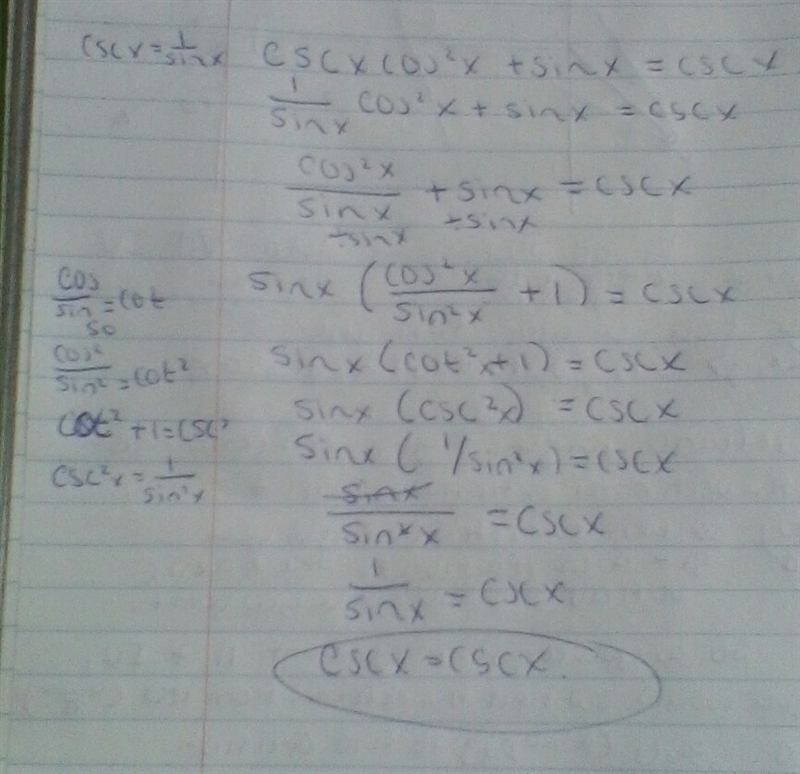 cscx = 1/sinx
cscxcos²x + sinx = cscx
1/sinx cos²x + sinx = cscx
cos²x/sinx + sinx = cscx
÷sinx ÷sinx
sinx (cos²x/sin²x + 1) = cscx
cos/sin = cot
so
cos²/sin² = cot²
cot² + 1 = csc²
csc²x = 1/sin²x
sinx (cot²x+1) = cscx
sinx (csc²x) = cscx
sinx (1/sin²x) = cscx
sinx/sin²x = cscx
1/sinx = cscx
cscx = cscx.